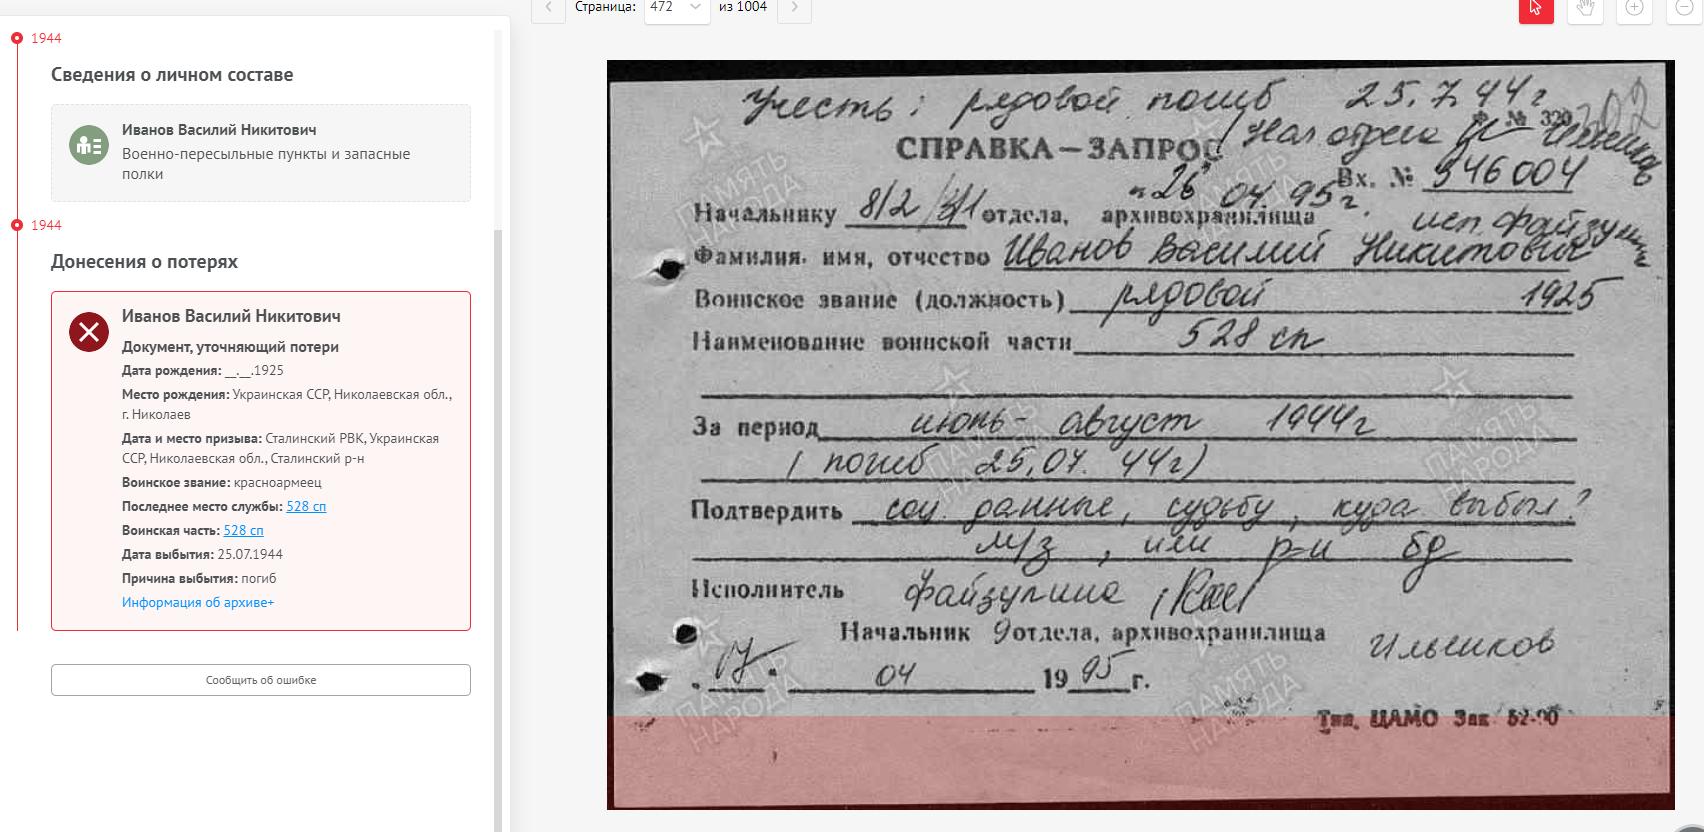 Страница: 472 из 1004
1944
Сведения о личном составе
Иванов Василий Никитович
Военно-пересыльные пункты и запасные
полки
1944
Донесения о потерях
Иванов Василий Никитович
Документ, уточняющий потери
Дата рождения: __.__.1925
Место рождения: Украинская ССР, Николаевская обл.,
г. Николаев
Дата и место призыва: Сталинский РВК, Украинская
ССР, Николаевская обл., Сталинский р-н
Воинское звание: красноармеец
Последнее место службы: 528 сп
Воинская часть: 528 сп
Дата выбытия: 25.07.1944
Причина выбытия: погиб
Информация об архиве+
Сообщить об ошибке
Учесть: рядовой погиб 25.7.44г
Ф. № 320
СПРАВКА–ЗАПРОС
Нач отдела
Вх. № 346004
"26" 04.95г.
Начальнику 8/2 отдела, архивохранилища
исп.
Фамилия, имя, отчество Иванов Василий Никитович
Воинское звание (должность) рядовой 1925
Наименование воинской части 528 сп
За период июнь- август 1944г
(погиб 25.07.44г)
Подтвердить соц. данные, судьбу, куда выбыл?
м/з, или р-н бд
Исполнитель Файзулина
Начальник 9 отдела, архивохранилища Ильенков
"17" 04 1995 г.
Тип. ЦАМО Зак 52-90
ПАМЯТЬ
НАРОДА